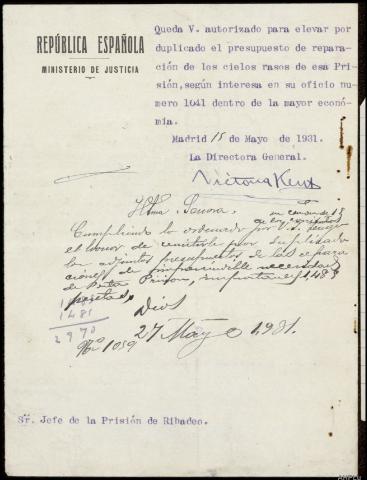 REPÚBLICA ESPAÑOLA
MINISTERIO DE JUSTICIA
Queda V. autorizado para elevar por
duplicado el presupuesto de repara-
ción de los cielos rasos de esa Pri-
sión,según interesa en su oficio nu-
mero 1041 dentro de la mayor econó-
mia.
Madrid 15 de Mayo de 1931.
La Directora General.
Victoria Kent
Iltma. Senora.
Cumpliendo lo ordenado por V. I. tengo
el honor de remitirle por duplicado
los adjuntos presupuestos de las repara
ciones de imprescindible necesidad
de esta Prisión, importantes 1485
pesetas.
1485
2970
Dios
Nº 1059
27 Mayo 1931.
Sr. Jefe de la Prisión de Ribadeo.